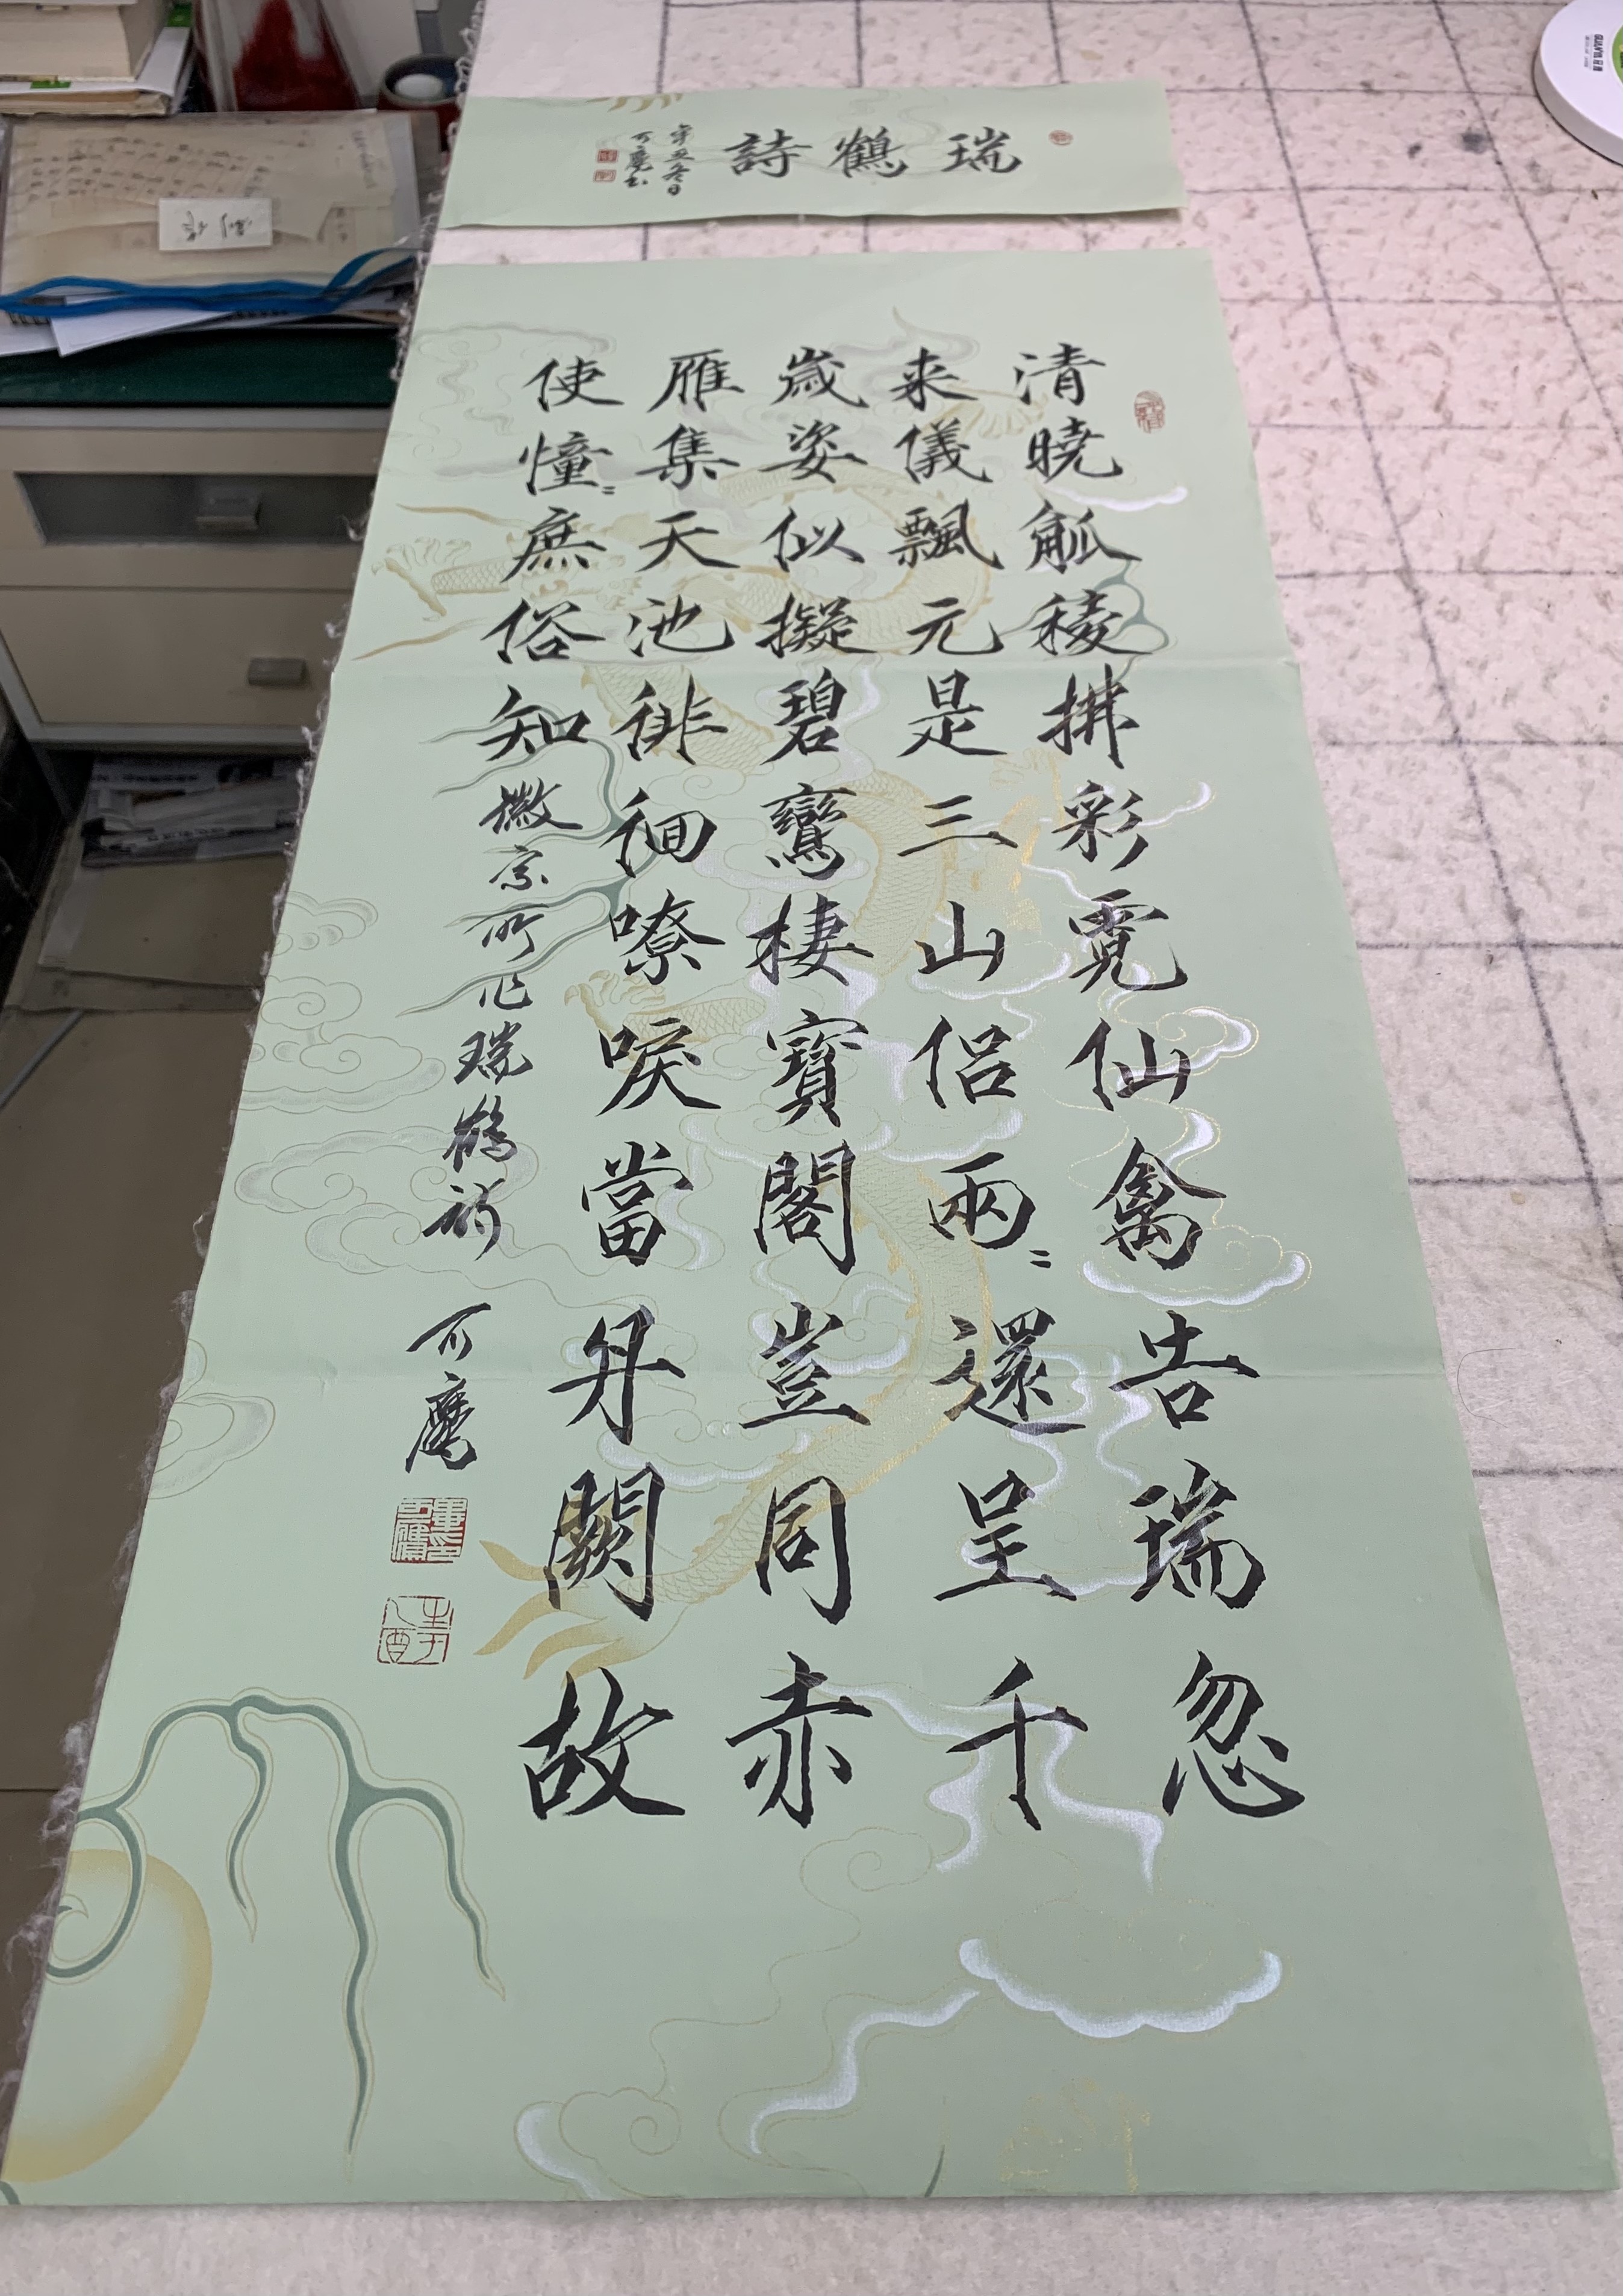 瑞鶴詩
辛丑冬日
清曉觚稜拂彩霓仙禽告瑞忽
来儀飄元是三山侣兩〻還呈千
歲姿似擬碧鸞棲寶閣豈同赤
雁集天池徘徊嘹唳當丹闕故
使憧〻庶俗知
徽宗所作瑞鶴詩